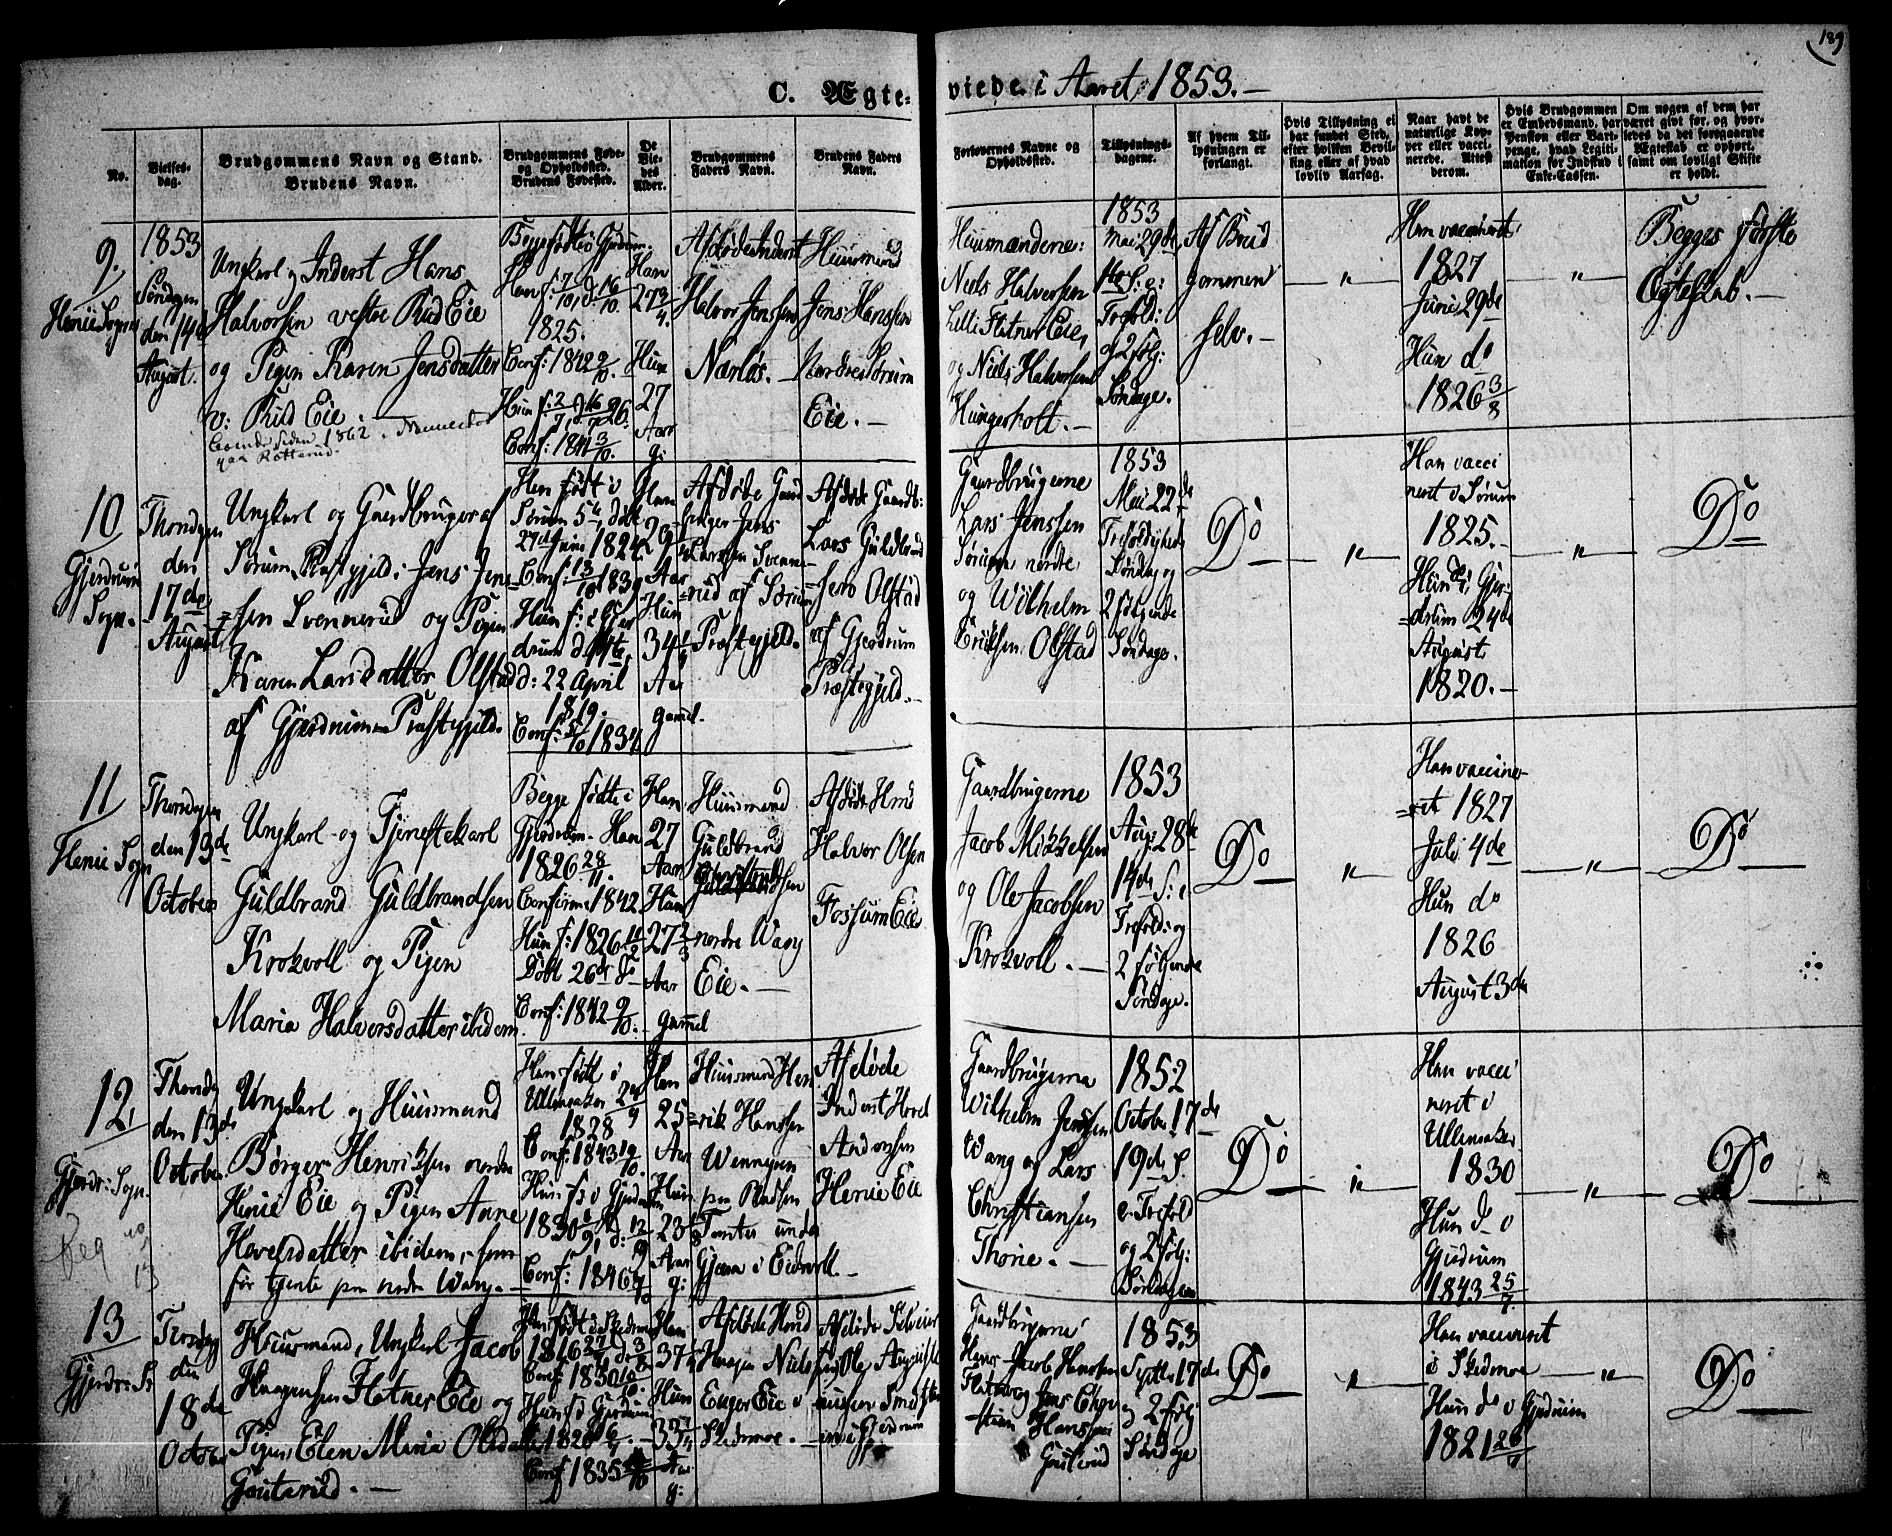 189
C. Ægteviede i Aaret 1853.
No.
Vielsesdag.
Brudgommens Navn og Stand.
Brudens Navn.
Brudgommens Føde-
og Opholdssted.
Brudens Fødested.
De
Vie-
des
Alder.
Brudgommens
Faders Navn.
Brudens Faders
Navn.
Forlovernes Navne og
Opholdssted.
Tillysnings-
dagene.
Af hvem Til-
lysningen er
forlangt.
Hvis Tillysning ei
har fundet Sted,
efter hvilken Bevil-
ling eller af hvad
lovlig Aarsag.
Naar havt de
naturlige Kop-
per eller vacci-
nerede. Attest
derom.
Hvis Brudgommen
er Embedsmand, har
Pension eller Vart-
penge, hvad Legiti-
mation for Indskud i
Enke-Cassen.
Om nogen af dem har
været givt før, og hvor-
ledes da det foregaaende
Ægteskab er ophørt,
samt om lovligt Skifte
er holdt.
9.
Henie Sogn
1853
Søndagen
den 14de
August.
Ungkarl og Inderst Hans
Halvorsen vestre Rud Eie
og Pigen Karen Jensdatter
v: Rud Eie.
siden 1862
Begge fødte i Gjerdrum.
1825.
Conf: 1842 9/10.
Conf: 1841 3/10.
Han
27 3/4.
Hun
27
Aar
g:
Afdøde Inderst
Halvor Jenssen
Huusmand
Jens Hanssen
Nordre Sørum
Eie.
Huusmændene:
Niels Halvorsen
Lille Flatner Eie,
og Niels Halvorsen
Hungerholt.
1853
Mai 29de
Trefold:
og 2 følg:
Søndage.
Af Brud
gommen
selv.
"
Han vaccineret
1827
Juni 29de
Hun do
1826 3/8
"
Begges første
Ægteskab.
10
Gjerdrum
Sogn.
Thorsdagen
den
17de
August
Ungkarl og Gaardbruger af
Sørum Præstegjeld: Jens Jens=
=sen Svennerud og Pigen
Karen Larsdatter Olstad
af Gjerdrum Præstegjeld.
Han født i
Sørum
27de Juni 1824.
Conf: 13/10 1839
d: 22 April
1819.
Conf: 1834
Han
29
Aar
Hun
34
Aar
gamel.
Afdøde Gaard
bruger Jens
Larssen Svenne=
=rud af Sørum
Præstegjeld.
Afdøde Gaardb:
Lars Guldbrand
=sen Olstad
af Gjerdrum
Præstegjeld.
Gaardbrugerne
Lars Jenssen
Sørum nordre
og Wilhelm
Eriksen Olstad
1853
Mai 22de
Trefoldigheds
Søndag og
2 følgende
Søndage.
Do
"
Han vacci
neret i Sørum
1825.
Hun do i Gjer=
=drum 24de
August
1820.
"
Do
11
Henie Sogn
Thorsdagen
den 13de
October
Ungkarl og Tjenestekarl
Guldbrand Guldbrandsen
Krokvoll og Pigen
Maria Halvorsdatter ibidem.
Begge fødte i
Gjerdrum. Han
1826 28/11.
Confirm: 1842.
Hun f: 1826
Døbt 26de do
Conf: 1842 9/10.
Han
27
Aar
Hun
27 2/3
Aar
gamel
Huusmand
Guldbrand
nordre Wang
Eie.
Afdøde Hmd
Halvor Olsen
Fossum Eie
Gaardbrugerne
Jacob Mikkelsen
og Ole Jacobsen
Krokvoll.
1853
Aug: 28de
14de S: e
Trefold: og
2 følgende
Søndage.
Do
"
Han vaccine=
=ret 1827
Juli 4de
Hun do
1826
August 3de
"
Do
12.
Gjerdr: Sogn.
Thorsdag
den 13de
October
Ungkarl og Huusmand
Børger Henriksen nordre
Henie Eie og Pigen Anne
Hovelsdatter ibidem, som
før tjente paa nordre Wang.
Han født i
Ullensaker
1828
Conf: 1843
Hun f: i Gjerdrum
1830
Conf: 1846
Han
25
Aar
Hun
23
Aar
g:
Huusmand Hen
=rik Hanssen
Wennegen
paa Pladsen
Tomter under
Gjera i Eidsvoll.
Afdøde
Inderst Hovel
Andersen
Henie Eie
Gaardbrugerne
Wilhelm Jenssen
Wang og Lars
Christiansen
Thorie.
1852
October 17de
19de S.
e. Trefold
og 2 følg:
Søndagen
Do
"
Han vacci
neret i
Ullensaker
1830
Hun do i
Gjerdrum
1843 25/7.
"
Do
13
Gjerdr: S:
Tirsdag
den
18de
October
Huusmand, Ungkarl Jacob
Haagensen Flatner Eie og
Pigen Elen Maria Olsdatter
Gouterud.
Han født i Skedsmo
1816
Conf 1830
Hun f i Gjerdrum
1820
Conf 1835
Han
37
Hun
33
Aar
g:
Afdøde Hmd
Haagen Niels
Enger Eie i
Skedsmoe.
Gaardbrugerne
Hans Jacob Hanssen
Flatner og Jens Chri
=stian Hanssen
Gouterud
1853
Septbr 17de
og 2 følg
Søndage
Do
"
Han vaccineret
i Skedsmoe
Hun do i Gjerdrum
1821
"
Do